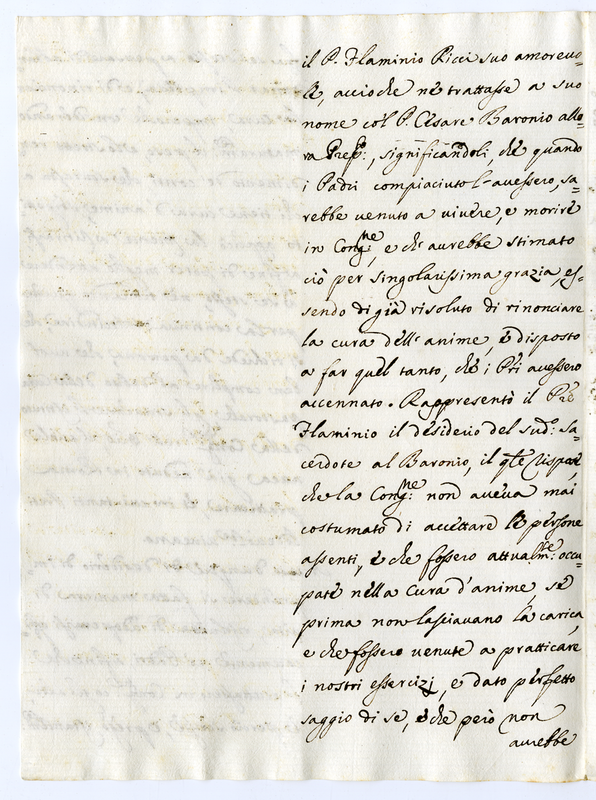 il P. Flaminio Ricci suo amoreuo=
le, accioche ne trattasse a suo
nome col P. Cesare Baronio allo=
ra Prep:, significandoli, che quando
i Padri compiaciuto l'avessero, sa=
rebbe venuto a vivere, e morire
in Congne:, e che aurebbe stimato
ciò per singolarissima grazia, es=
sendo di già risoluto di rinonciare
la cura dell'anime, e disposto
a far quel tanto, che i Pri avessero
accennato. Rappresentò il Pre
Flaminio il desiderio del sudo: sa=
cerdote al Baronio, il qte rispose,
che la Congne: non aveva mai
costumato di accettare le persone
assenti, e che fossero attualmte: occu=
pate nella cura d'anime, se
prima non lasciavano la carica,
e che fossero venute a pratticare
i nostri essercizj, e dato perfetto
saggio di se, e che però non
aurebbe